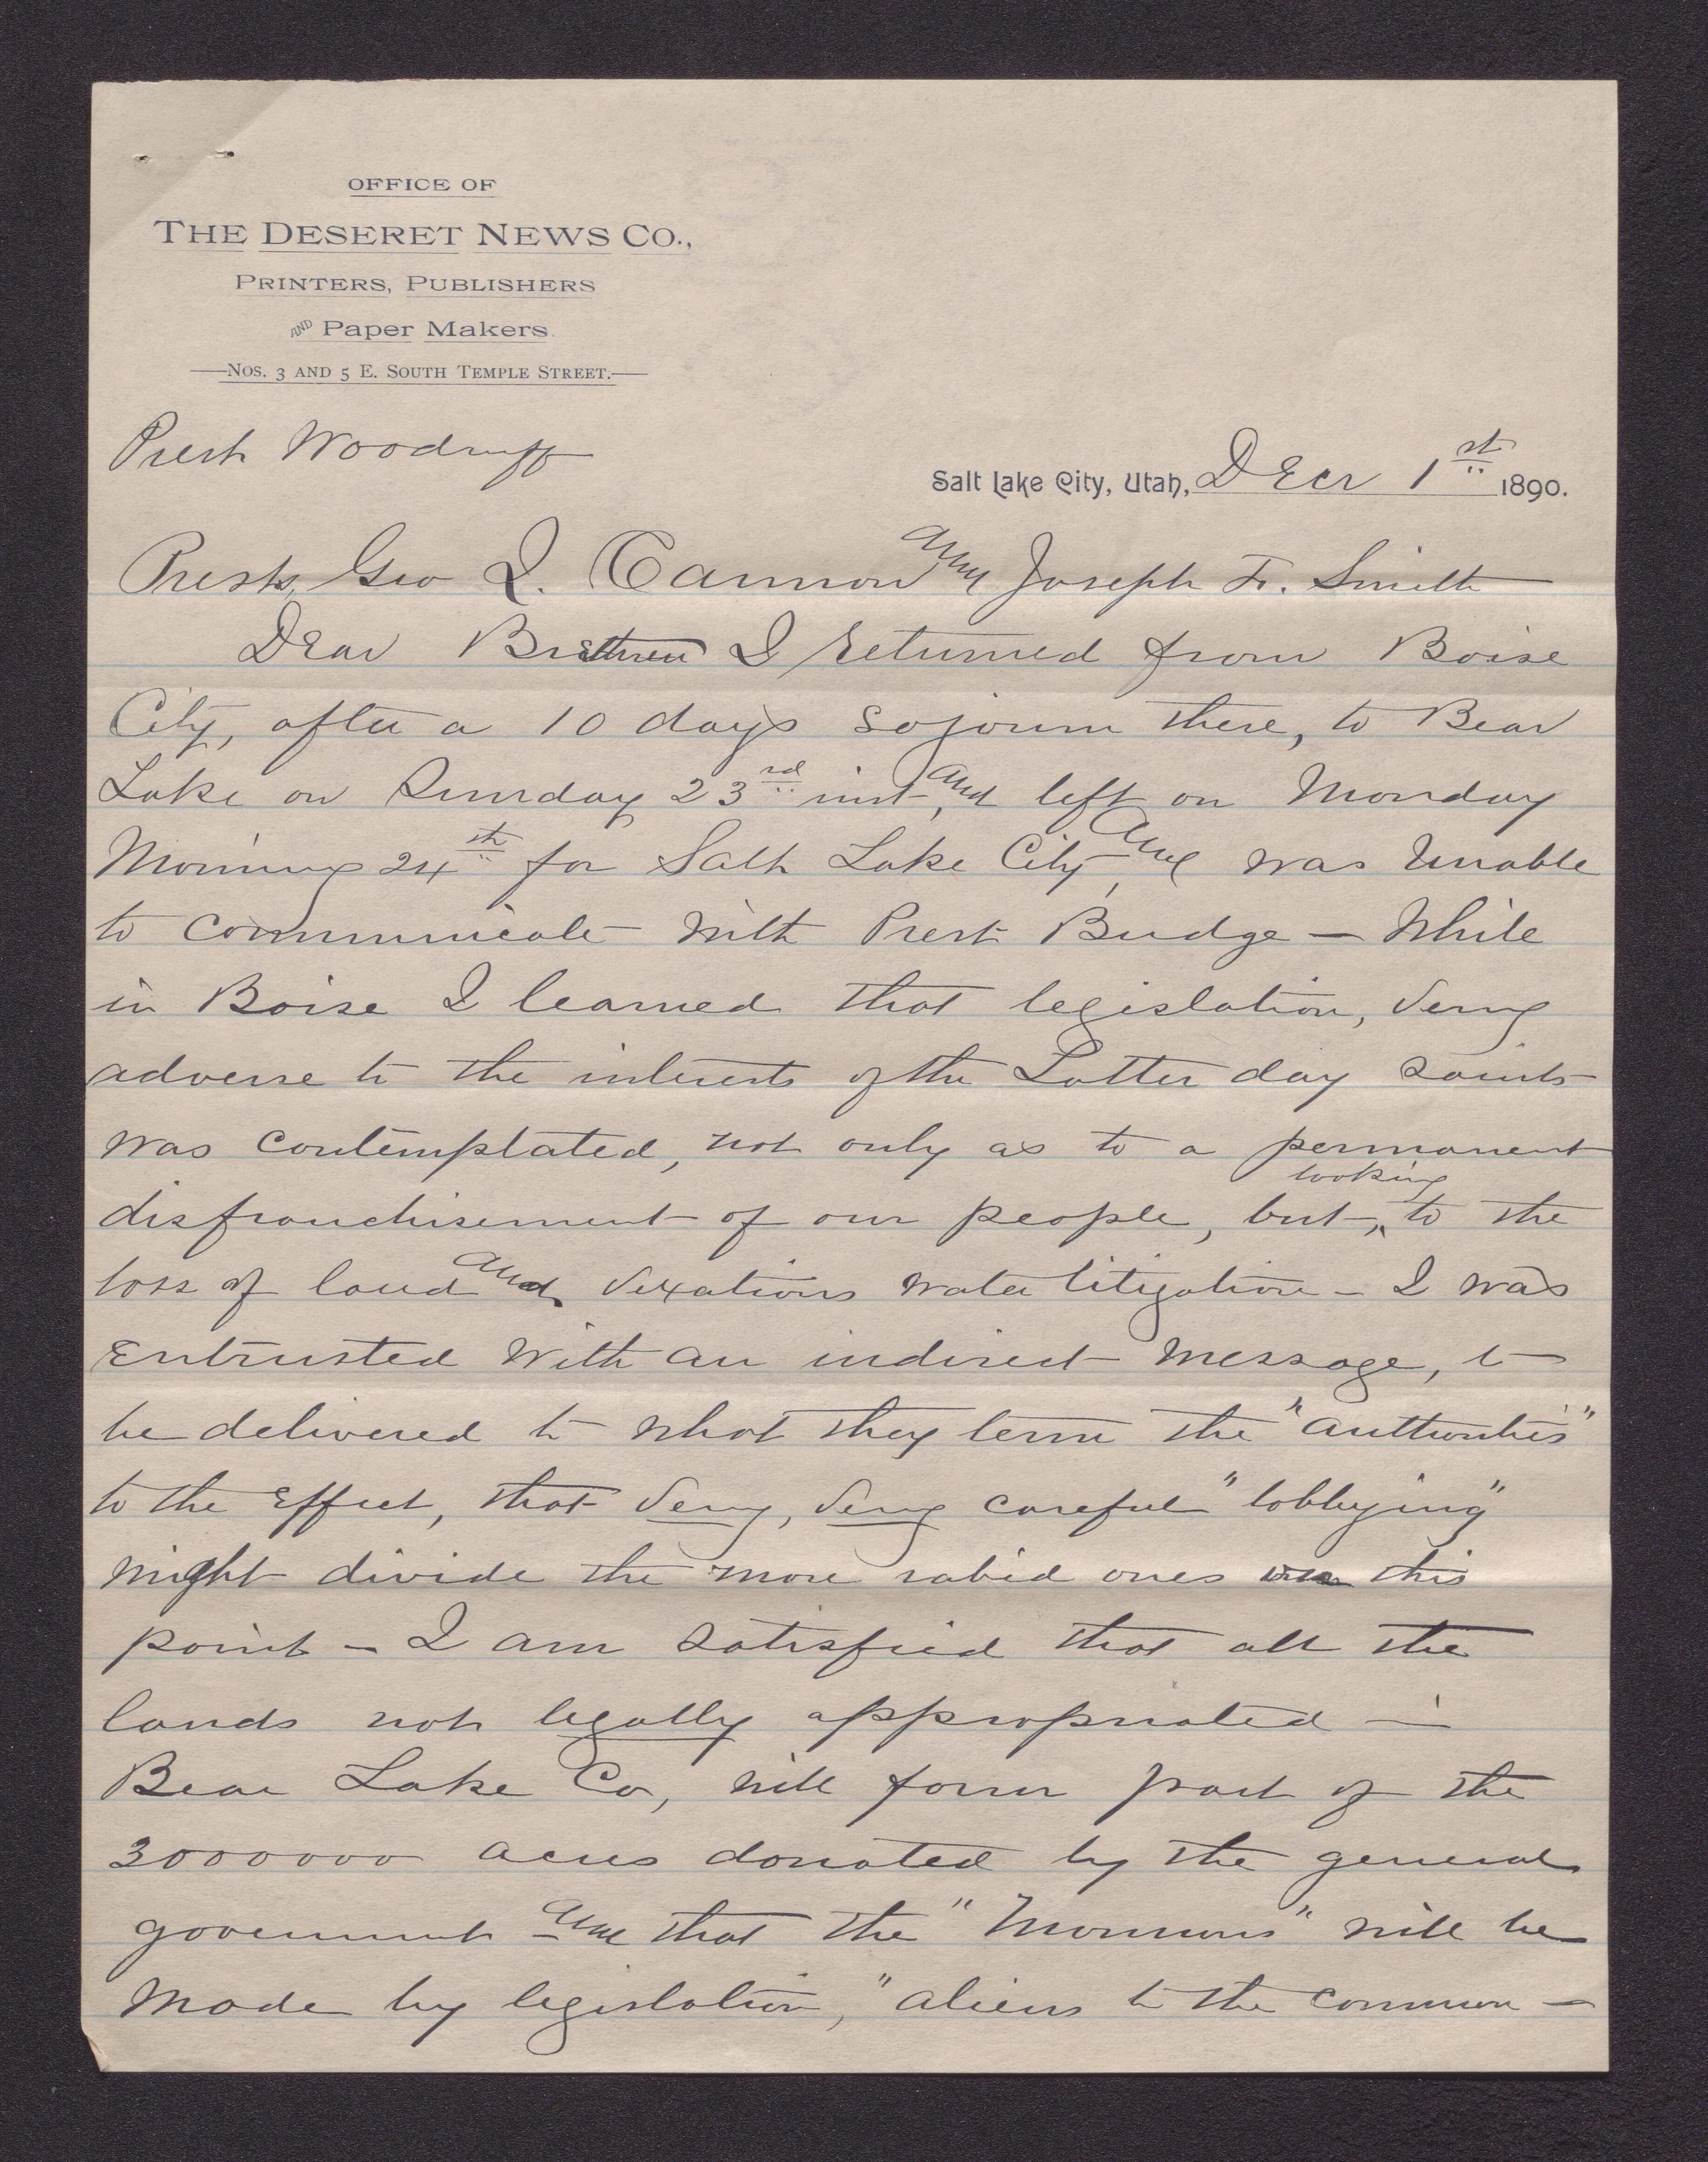 OFFICE OF
THE DESERET NEWS CO.,
PRINTERS, PUBLISHERS
AND Paper Makers.
NOS. 3 AND 5 E. SOUTH TEMPLE STREET.
Prest Woodruff
Salt Lake City, Utah, Decr 1st 1890.
Prests Geo Q. Cannon and Joseph F. Smith
Dear Brethren I returned from Boise
City, after a 10 days sojourn there, to Bear
Lake on Sunday 23rd inst, and left on Monday
Morning 24th for Salt Lake City, and was Unable
to communicate with Prest Budge — While
in Boise I learned that legislation, very
adverse to the interests of the Latter day Saints
was contemplated, not only as to a permanent
disfranchisement of our people, but, looking to the
loss of land and vexatious water litigation — I was
Entrusted with an indirect message, to
be delivered to what they term the "authorities"
to the Effect, that very, very careful "lobbying"
might divide the more rabid ones on this
point — I am satisfied that all the
lands not legally appropriated in
Bear Lake Co, will form part of the
3000000 acres donated by the general
government — and that the "Mormons" will be
made by legislation, "aliens to the common —